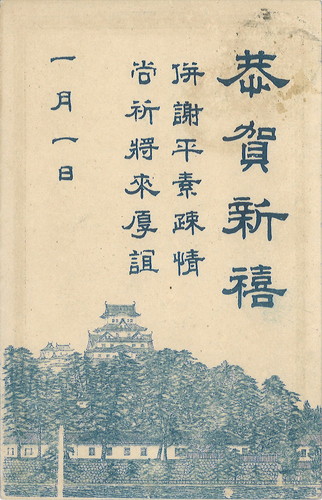 恭賀新禧
併謝平素疎情
尚祈將來厚誼
一月一日